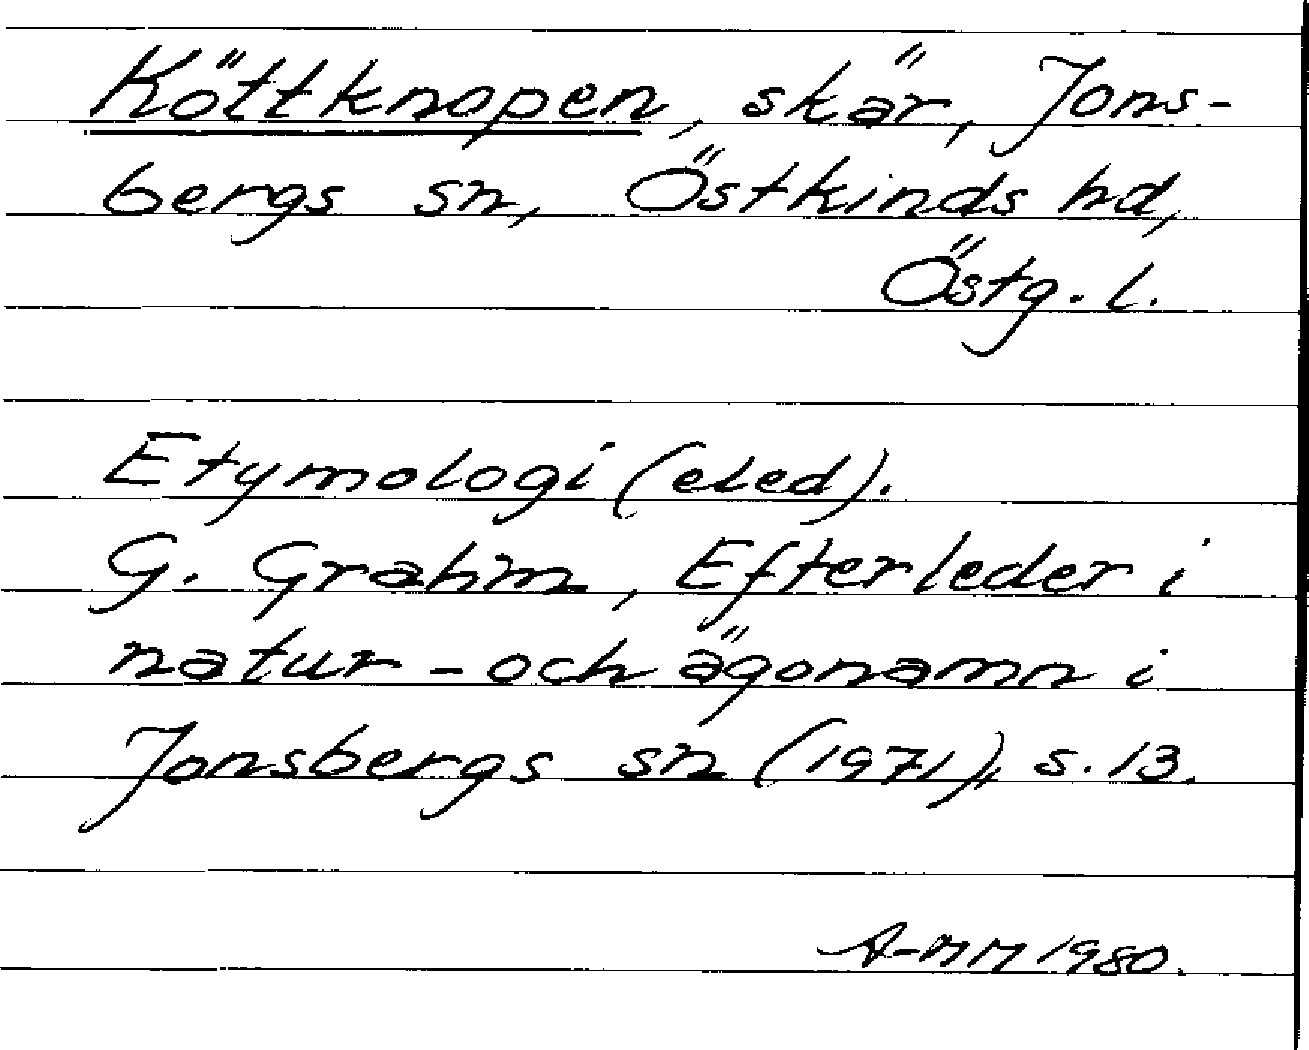 Köttknopen, skär, Jons-
bergs sn, Östkinds hd,
Östg. l.
Etymologi (eled).
G. Grahm, Efterleder i
natur- och ägonamn i
Jonsbergs sn (1971), s. 13.
A-MM 1980.